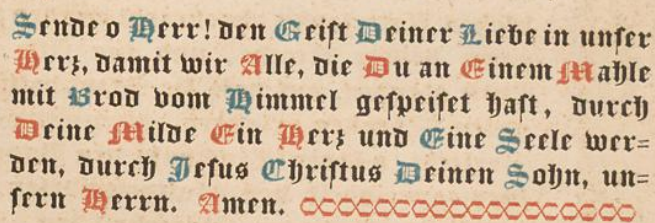 Sende o Herr! den Geist Deiner Liebe in unser
Herz, damit wir Alle, die Du an Einem Mahle
mit Brod vom Himmel gespeiset hast, durch
Deine Milde Ein Herz und Eine Seele wer=
den, durch Jesus Christus Deinen Sohn, un=
sern Herrn. Amen.